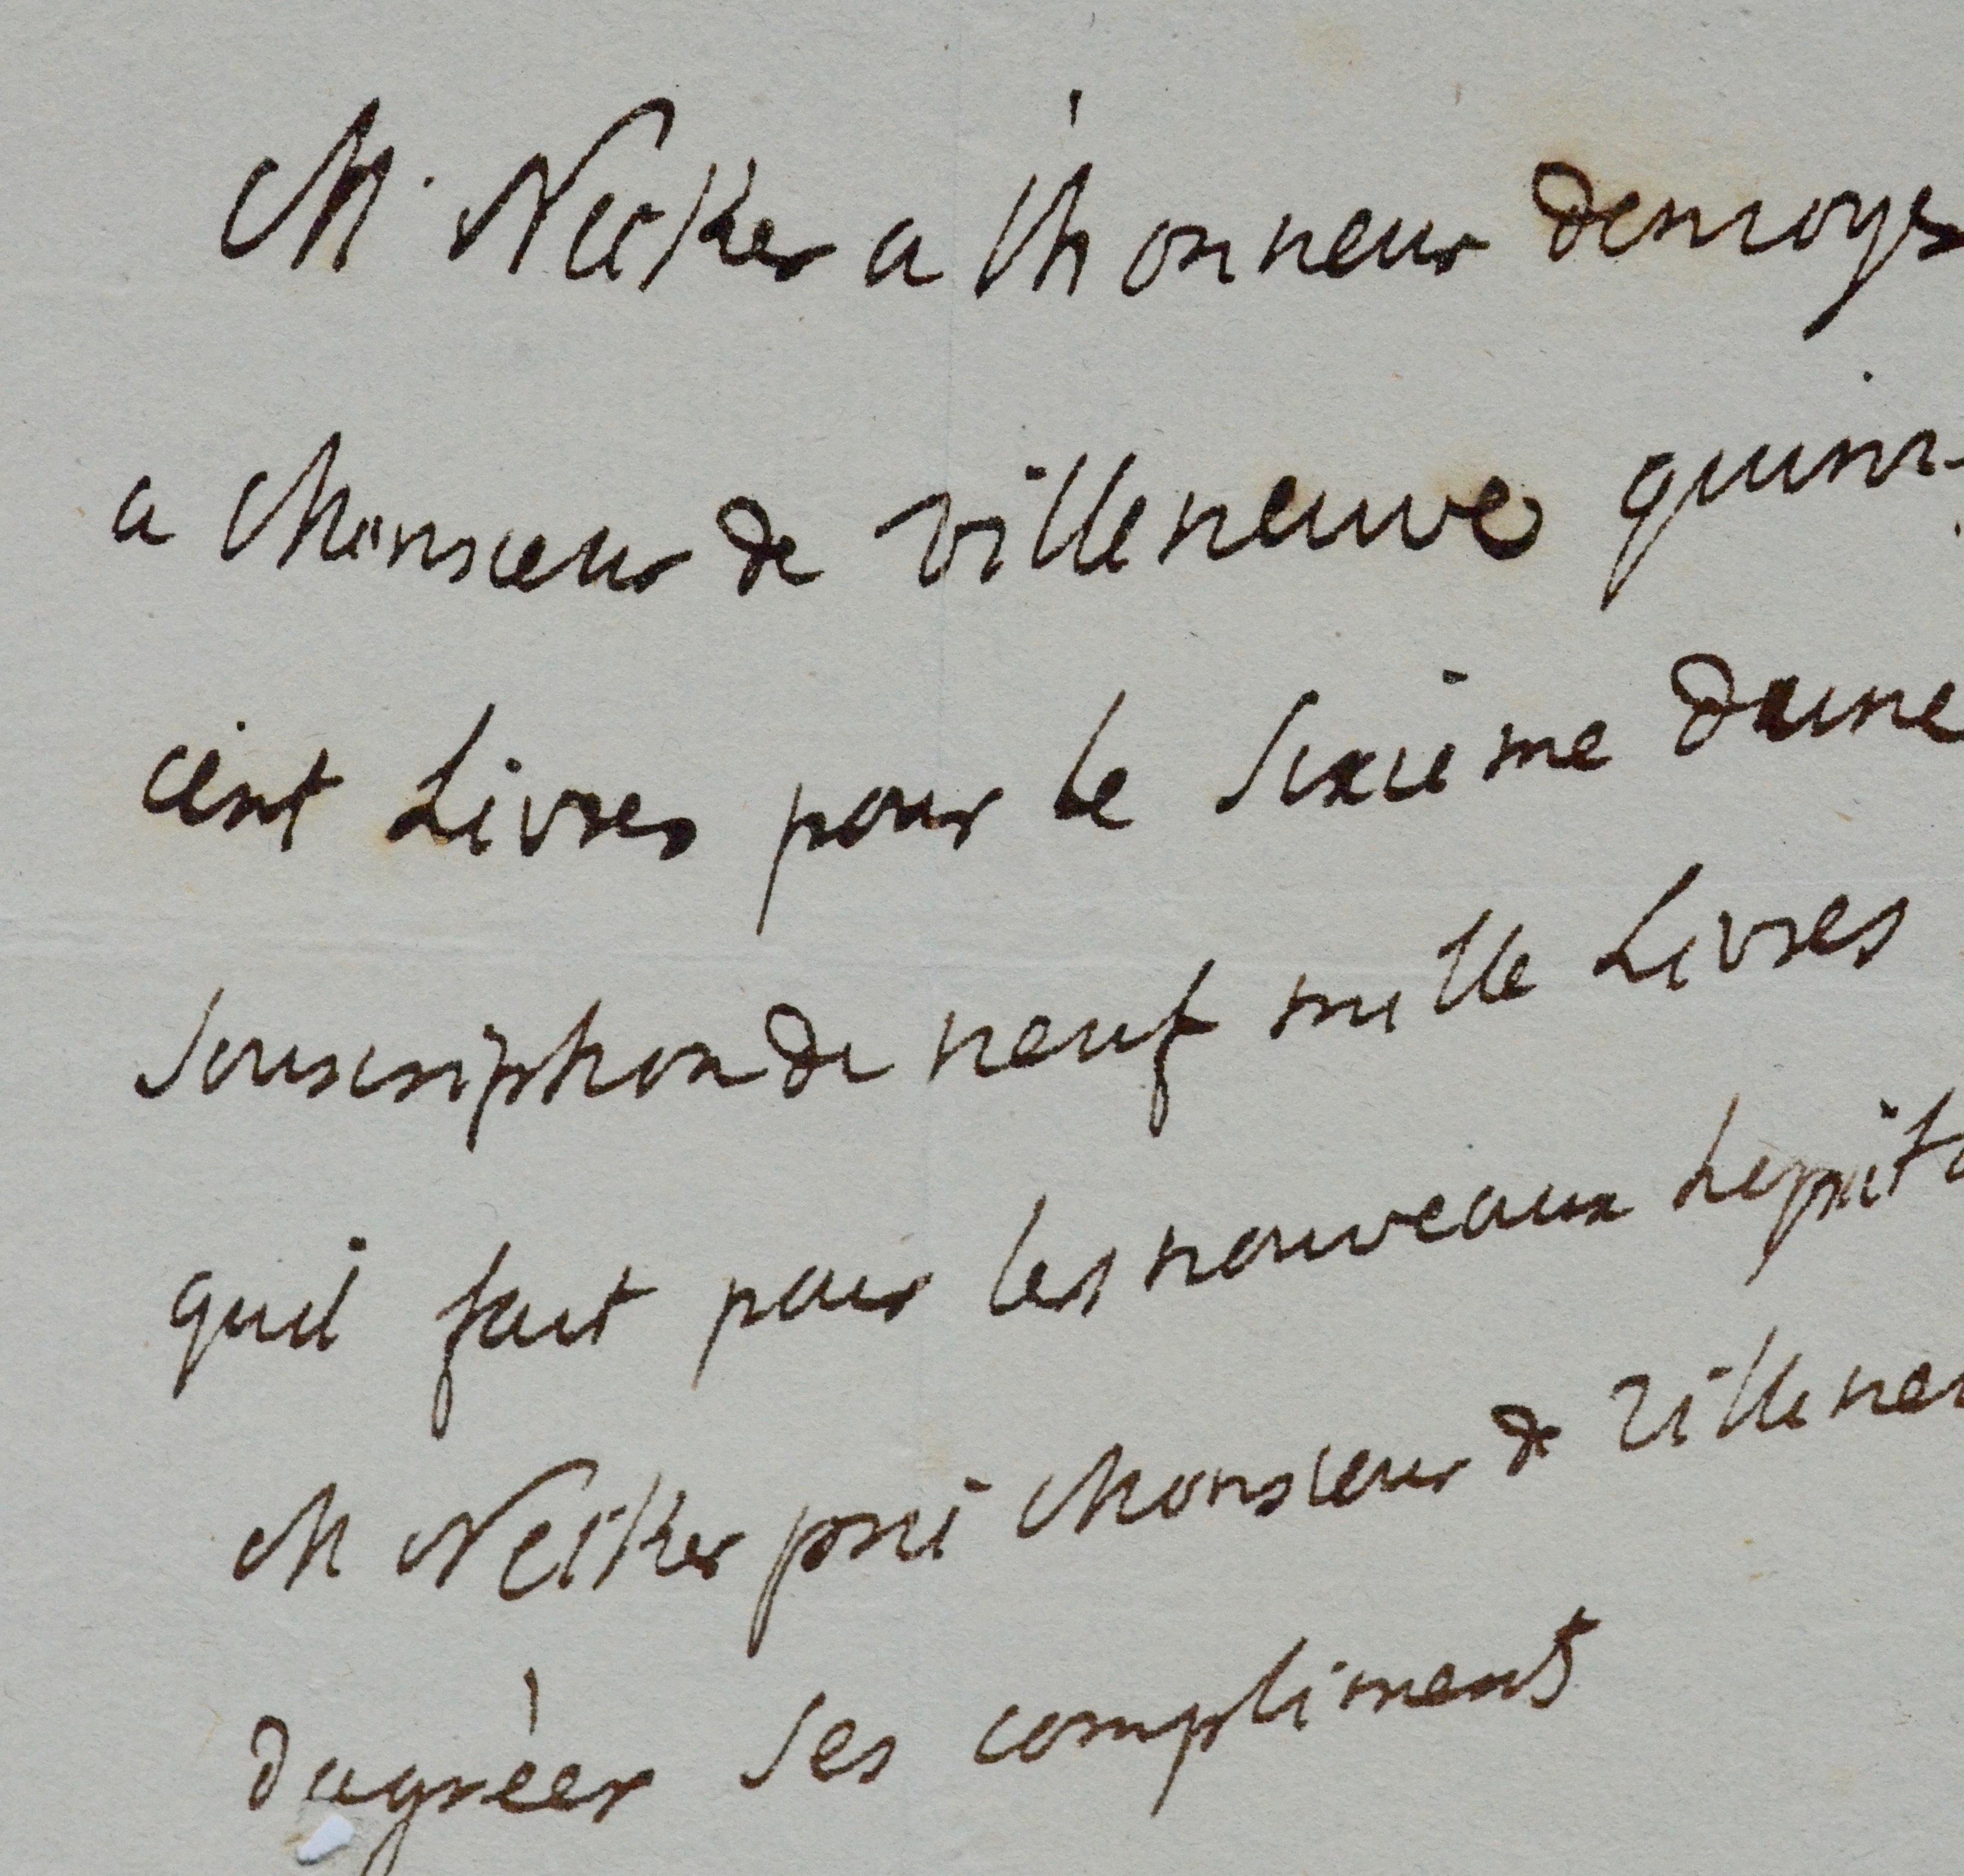 M. Necker a l'honneur denvoyer
a Monsieur de villeneuve quinz
cent Livres pour le sixième daune
souscription de neuf mille Livres
quil fait pour les nouveaux hopita
M Necker prie Monsieur de villeneu
dagréer ses compliments